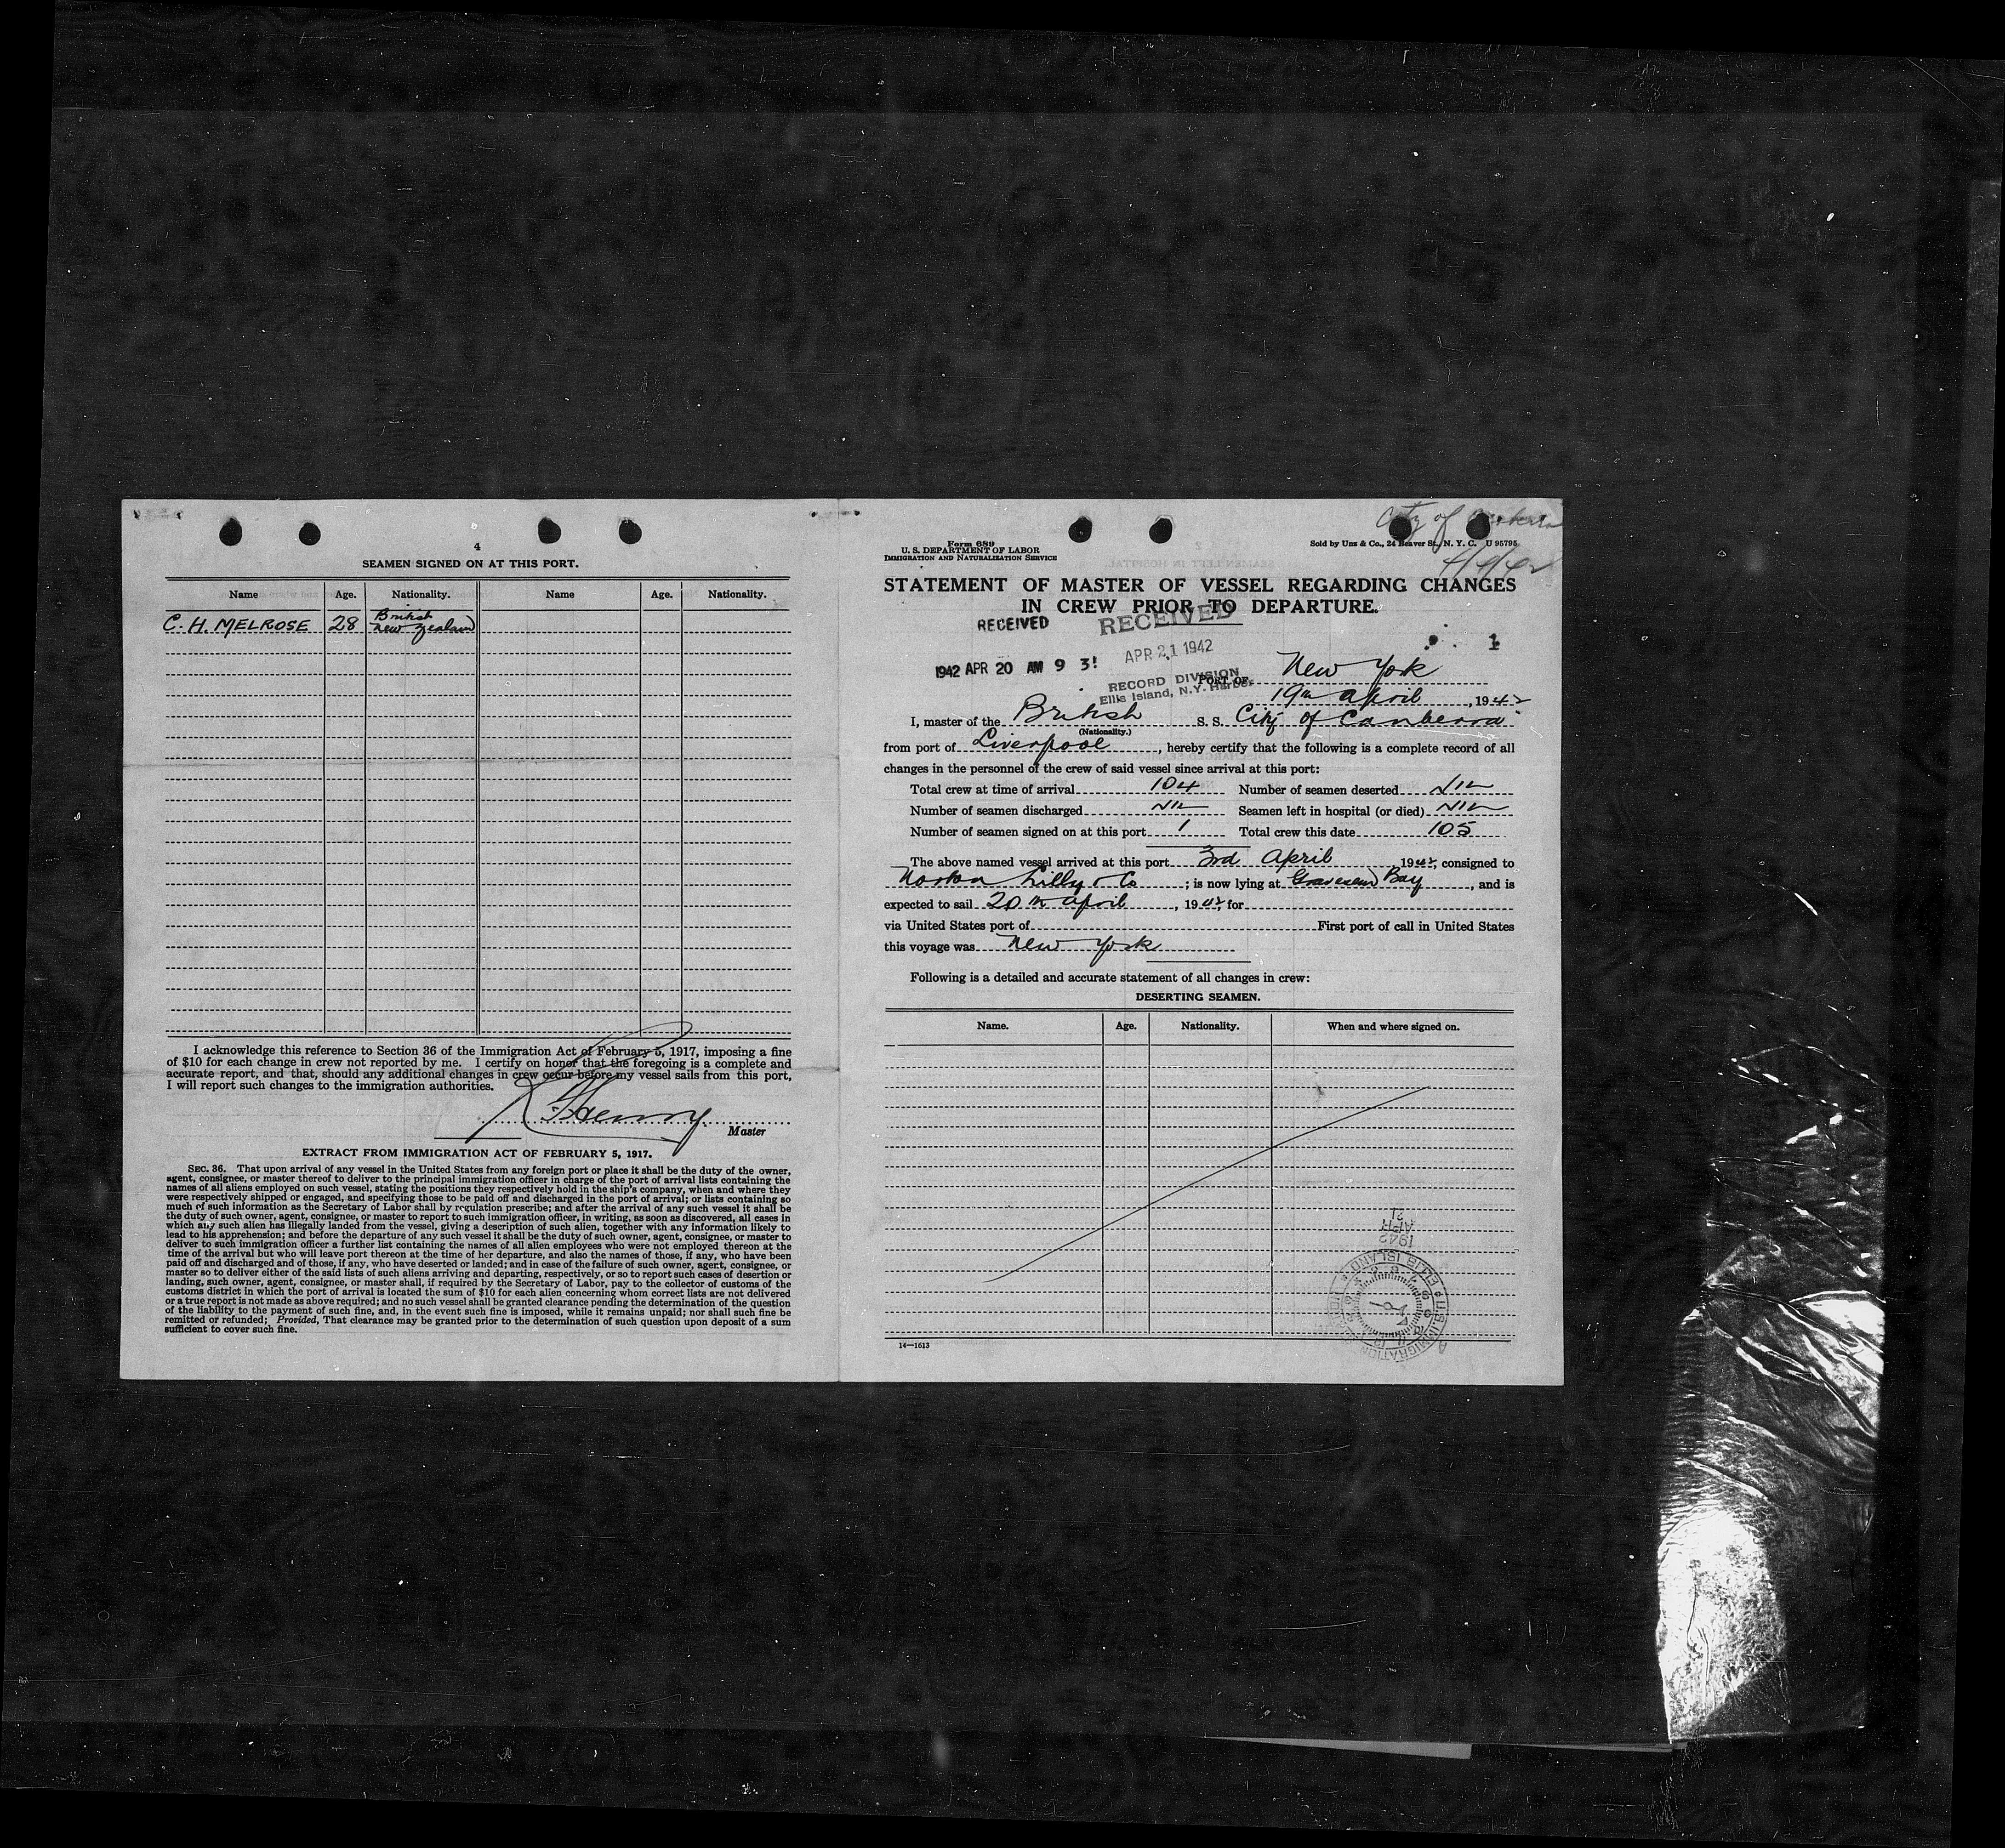 4
SEAMEN SIGNED ON AT THIS PORT.
Name Age. Nationality. Name Age. Nationality.
C. H. MELROSE 28 British
New Zealand
I acknowledge this reference to Section 36 of the Immigration Act of February 5, 1917, imposing a fine
of $10 for each change in crew not reported by me. I certify on honor that the foregoing is a complete and
accurate report, and that, should any additional changes in crew occur before my vessel sails from this port,
I will report such changes to the immigration authorities.
Master
EXTRACT FROM IMMIGRATION ACT OF FEBRUARY 5, 1917.
SEC. 36. That upon arrival of any vessel in the United States from any foreign port or place it shall be the duty of the owner,
agent, consignee, or master thereof to deliver to the principal immigration officer in charge of the port of arrival lists containing the
names of all aliens employed on such vessel, stating the positions they respectively hold in the ship's company, when and where they
were respectively shipped or engaged, and specifying those to be paid off and discharged in the port of arrival; or lists containing so
much of such information as the Secretary of Labor shall by regulation prescribe; and after the arrival of any such vessel it shall be
the duty of such owner, agent, consignee, or master to report to such immigration officer, in writing, as soon as discovered, all cases in
which any such alien has illegally landed from the vessel, giving a description of such alien, together with any information likely to
lead to his apprehension; and before the departure of any such vessel it shall be the duty of such owner, agent, consignee, or master to
deliver to such immigration officer a further list containing the names of all alien employees who were not employed thereon at the
time of the arrival but who will leave port thereon at the time of her departure, and also the names of those, if any, who have been
paid off and discharged and of those, if any, who have deserted or landed; and in case of the failure of such owner, agent, consignee, or
master so to deliver either of the said lists of such aliens arriving and departing, respectively, or so to report such cases of desertion or
landing, such owner, agent, consignee, or master shall, if required by the Secretary of Labor, pay to the collector of customs of the
customs district in which the port of arrival is located the sum of $10 for each alien concerning whom correct lists are not delivered
or a true report is not made as above required; and no such vessel shall be granted clearance pending the determination of the question
of the liability to the payment of such fine, and, in the event such fine is imposed, while it remains unpaid; nor shall such fine be
remitted or refunded; Provided, That clearance may be granted prior to the determination of such question upon deposit of a sum
sufficient to cover such fine.
City of
Form 689
U. S. DEPARTMENT OF LABOR
IMMIGRATION AND NATURALIZATION SERVICE
Sold by Unz & Co., 24 Beaver St., N. Y. C. U 95795
STATEMENT OF MASTER OF VESSEL REGARDING CHANGES
IN CREW PRIOR TO DEPARTURE.
RECEIVED RECEIVED
1
1942 APR 20 AM 9 APR 21 1942
RECORD DIVISION
Ellis Island, N.Y. Harbor
PORT OF New York
19th April, 1942
I, master of the British S. S. City of Canberra
(Nationality.)
from port of Liverpool, hereby certify that the following is a complete record of all
changes in the personnel of the crew of said vessel since arrival at this port:
Total crew at time of arrival 104 Number of seamen deserted NIL
Number of seamen discharged NIL Seamen left in hospital (or died) NIL
Number of seamen signed on at this port 1 Total crew this date 105
The above named vessel arrived at this port 3rd April, 1942, consigned to
Norton Lilly & Co; is now lying at Gravesend Bay, and is
expected to sail 20th April, 1942, for
via United States port of First port of call in United States
this voyage was New York
Following is a detailed and accurate statement of all changes in crew:
DESERTING SEAMEN.
Name. Age. Nationality. When and where signed on.
1942
APR
21
U.S. IMMIGRATION
ELLIS ISLAND
14—1613